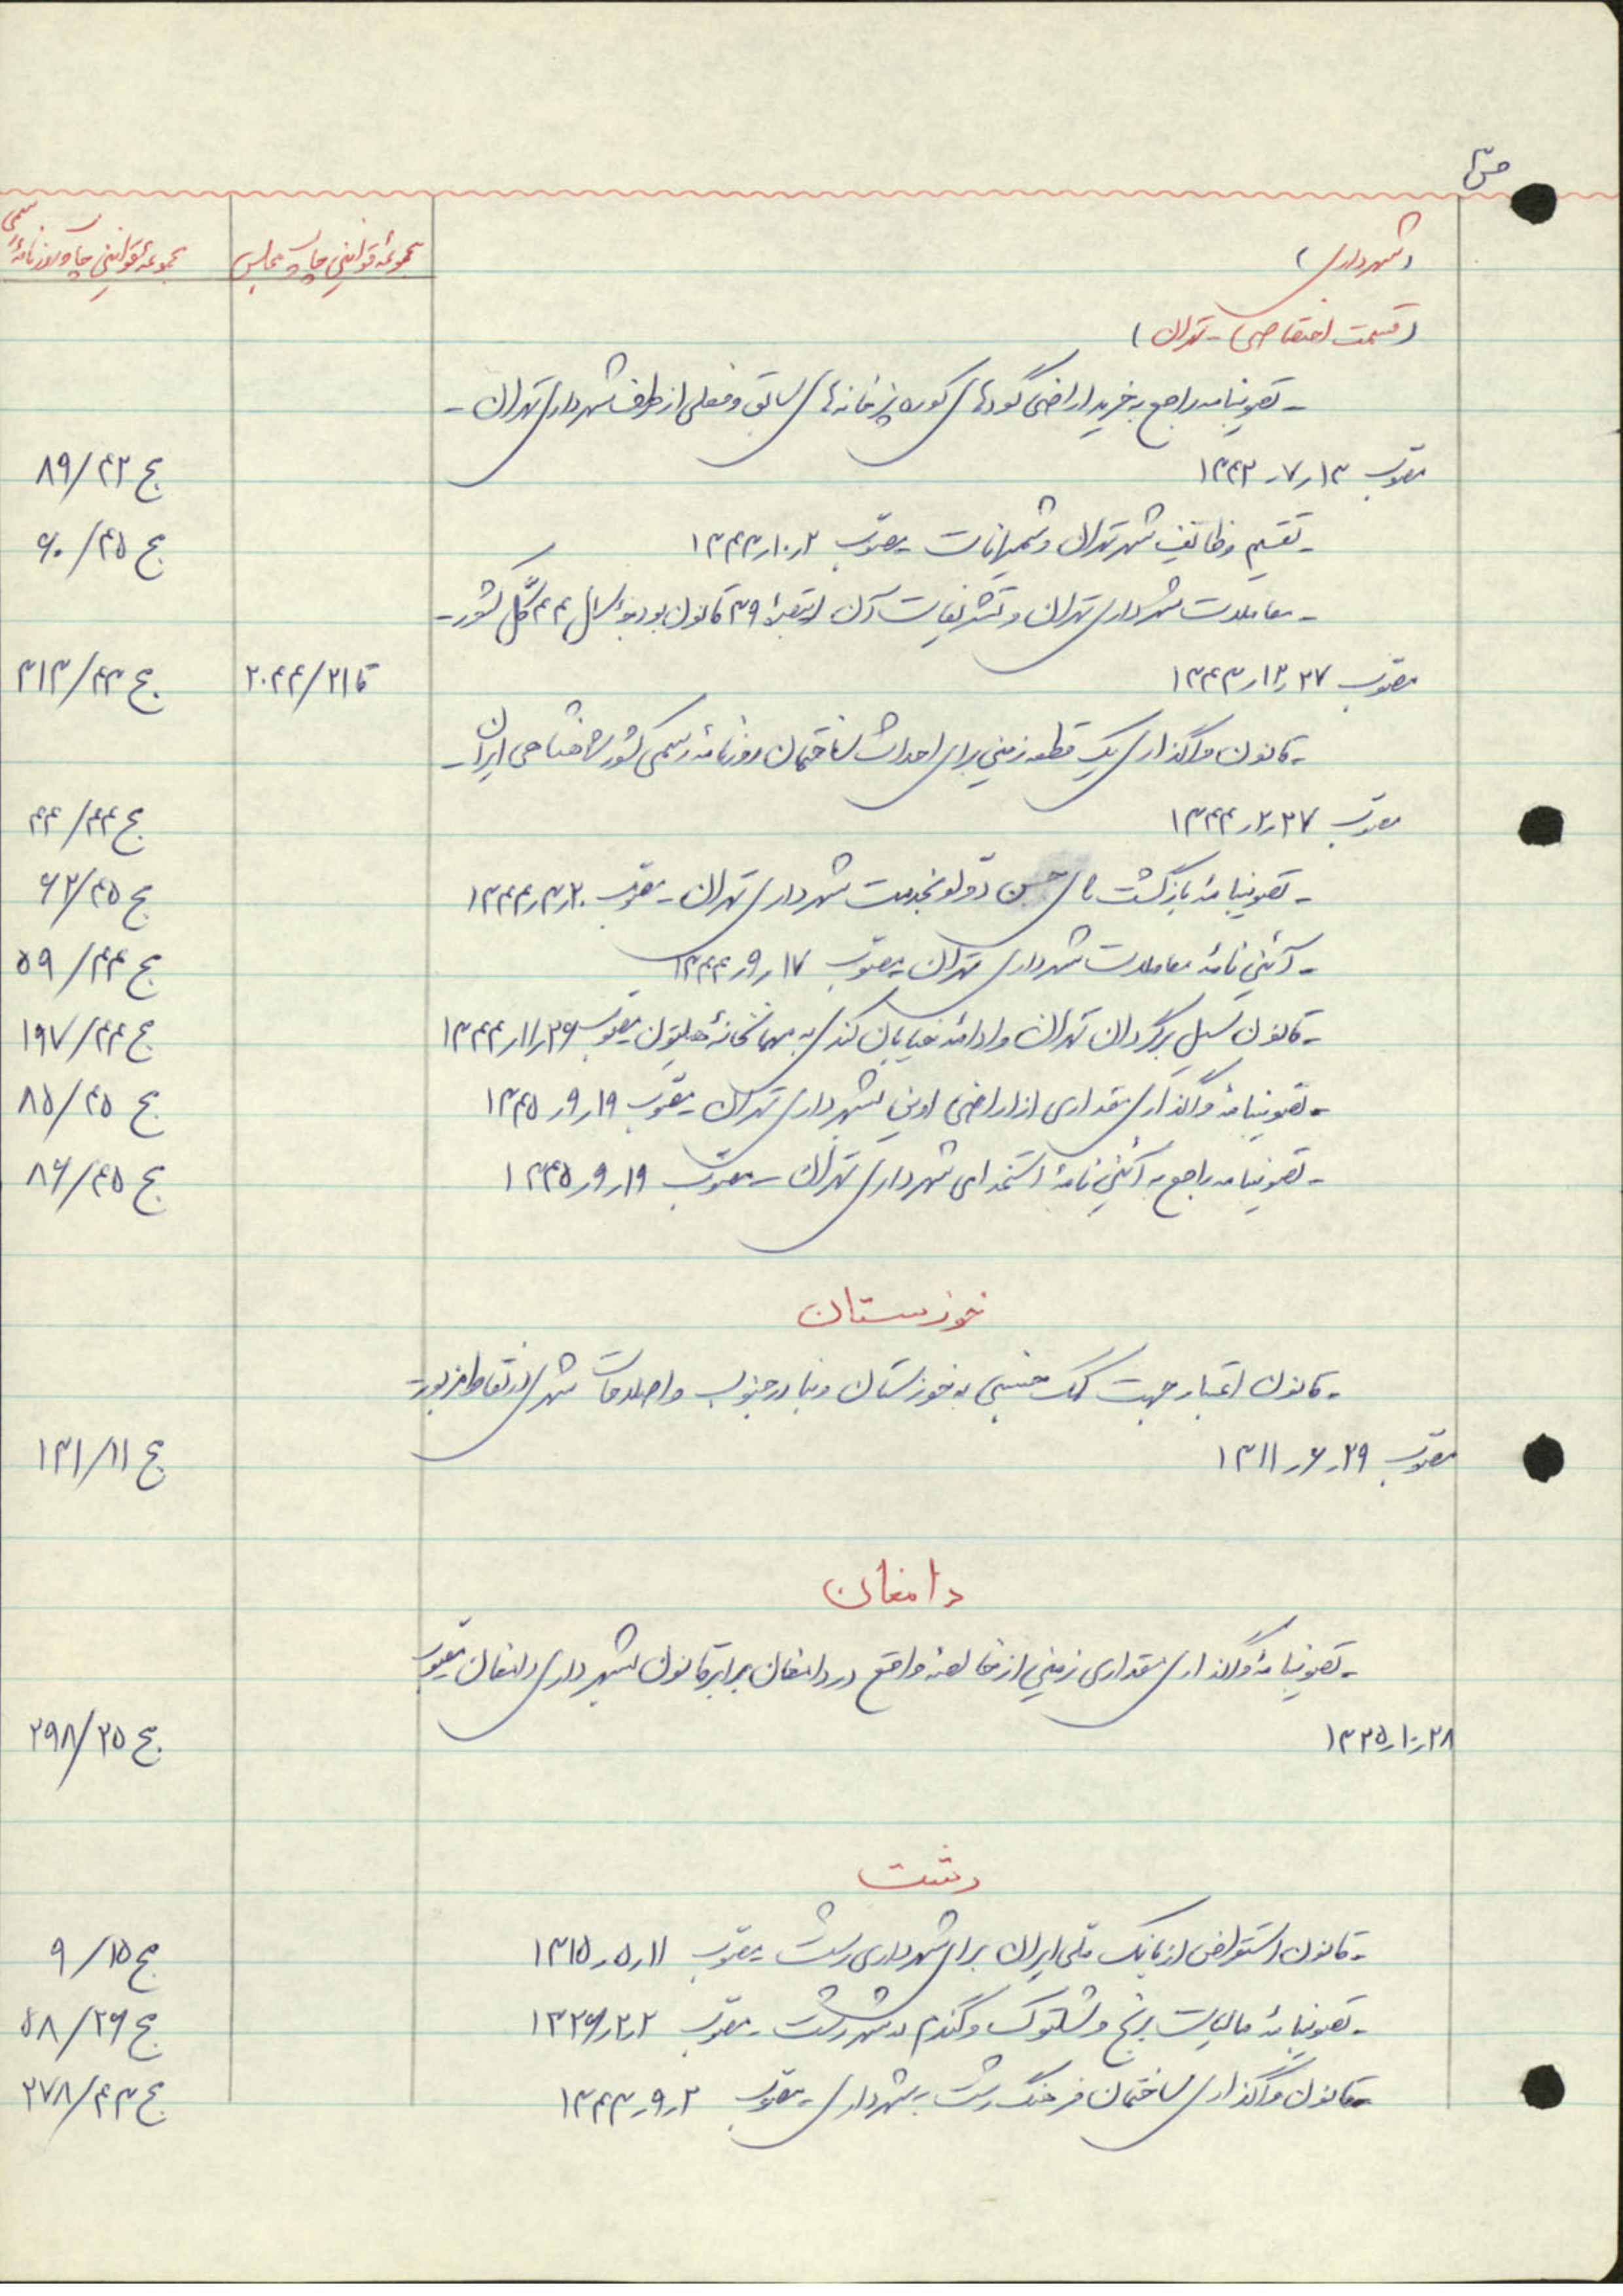 ص ۳
(شهرداری)
مجموعه قوانین چاپ مجلس
مجموعه قوانین چاپ روزنامه رسمی
(قسمت اختصاصی - تهران)
- تصویبنامه راجع به خرید اراضی گودهای کوره پزخانه‌های سابق و فعلی از طرف شهرداری تهران -
مصوب ۱۳ر۷ر۱۳۴۲ ج ۴۲/۸۹
- تقسیم وظائف شهر تهران و شمیرانات - مصوب ۲ر۱۰ر۱۳۴۳ ج ۴۵/۶۰
- معاملات شهرداری تهران و تشریفات آن از تبصره ۳۹ قانون بودجه سال ۴۴ کل کشور -
مصوب ۲۷ر۱۲ر۱۳۴۳ ق۲۱/۲۰۴۴ ج ۴۳/۳۱۳
- قانون واگذاری یک قطعه زمین برای احداث ساختمان روزنامه رسمی کشور شاهنشاهی ایران -
مصوب ۲۷ر۲ر۱۳۴۴ ج ۴۴/۴۴
- تصویبنامه بازگشت حسن دولو بخدمت شهرداری تهران - مصوب ۲۰ر۳ر۱۳۴۴ ج ۴۵/۶۲
- آئین نامه معاملات شهرداری تهران - مصوب ۱۷ر۹ر۱۳۴۴ ج ۴۴/۵۹
- قانون سیل برگردان تهران و ادامه خیابان کندی به مهمانخانه هیلتون مصوب ۲۶ر۱۱ر۱۳۴۴ ج ۴۴/۱۹۷
- تصویبنامه واگذاری مقداری از اراضی اوین بشهرداری تهران - مصوب ۱۹ر۹ر۱۳۴۵ ج ۴۵/۸۵
- تصویبنامه راجع به آئین نامه استخدامی شهرداری تهران - مصوب ۱۹ر۹ر۱۳۴۵ ج ۴۵/۸۶
خوزستان
- قانون اعتبار جهت کمک جنسی به خوزستان و بنادر جنوب و اصلاحات شهری در نقاط مزبور -
مصوب ۲۹ر۶ر۱۳۱۱ ج ۱۱/۱۳۱
دامغان
- تصویبنامه واگذاری مقداری زمین از خالصه واقع در دامغان برابر قانون بشهرداری دامغان مصوب
۲۸ر۱۰ر۱۳۲۵ ج ۲۵/۲۹۸
رشت
- قانون استقراض از بانک ملی ایران برای شهرداری رشت - مصوب ۱۱ر۵ر۱۳۱۵ ج ۱۵/۹
- تصویبنامه مالیات برنج و شلتوک و گندم در شهر رشت - مصوب ۲ر۲ر۱۳۲۶ ج ۲۶/۵۸
- قانون واگذاری ساختمان فرهنگ رشت بشهرداری - مصوب ۲ر۹ر۱۳۴۳ ج ۴۳/۲۷۸